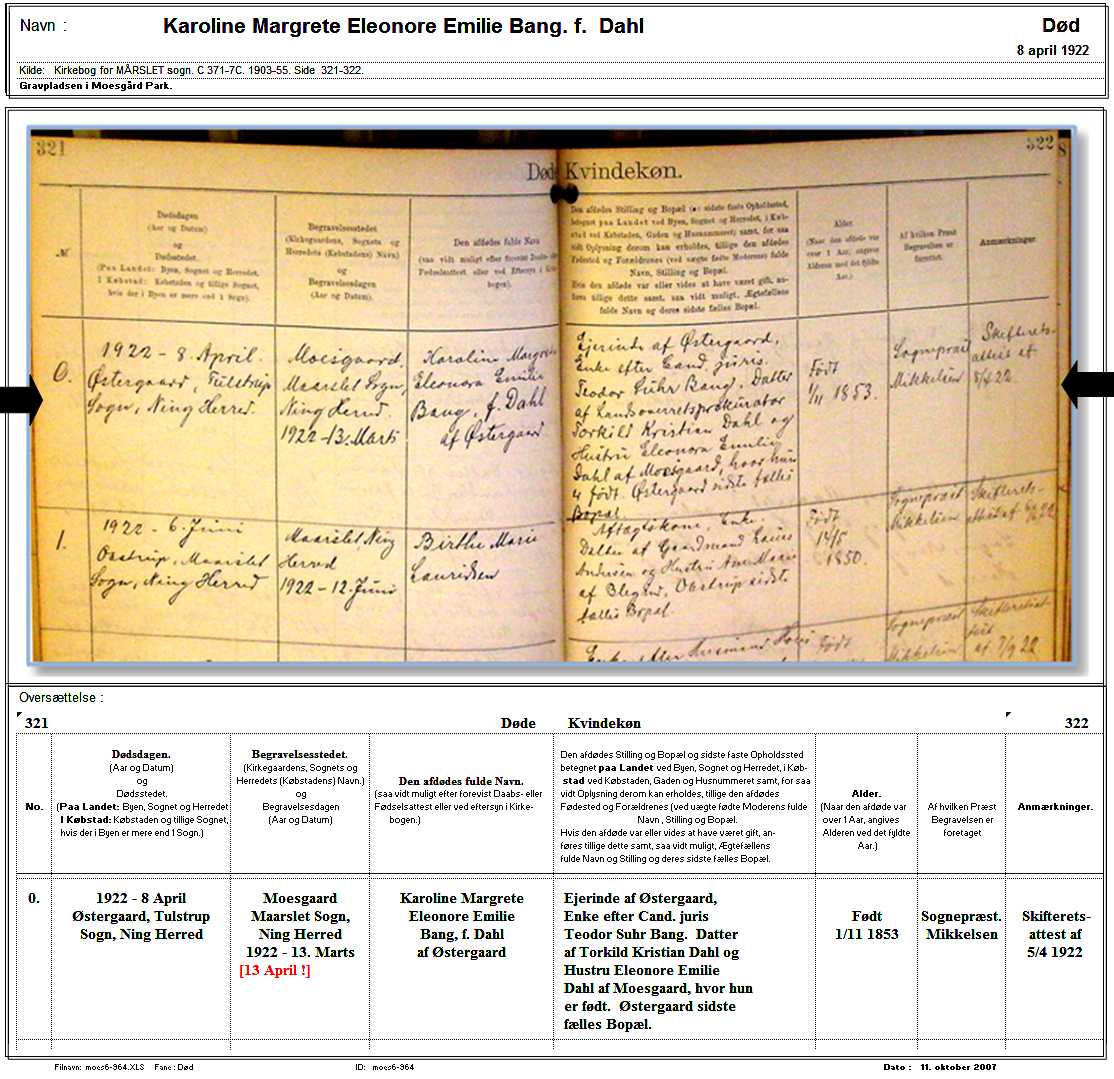 Navn :
Karoline Margrete Eleonore Emilie Bang. f. Dahl
Død
8 april 1922
Kilde: Kirkebog for MÅRSLET sogn. C 371-7C. 1903-55. Side 321-322.
Gravpladsen i Moesgård Park.
321
322
Døde Kvindekøn.
№
Dødsdagen
(Aar og Datum)
og
Dødsstedet.
(Paa Landet: Byen, Sognet og Herredet.
I Købstad: Købstaden og tillige Sognet,
hvis der i Byen er mere end 1 Sogn).
Begravelsesstedet
(Kirkegaardens, Sognets og
Herredets (Købstadens) Navn)
og
Begravelsesdagen
(Aar og Datum).
Den afdødes fulde Navn
(saa vidt muligt efter forevist
bogen).
Den afdødes Stilling og Bopæl
Navn, Stilling og Bopæl.
fulde Navn og deres sidste fælles Bopæl.
Alder
(Naar den afdøde var
over 1 Aar, angives
Alderen med det fyldte
Aar.)
Af hvilken Præst
Begravelsen er
forettet.
Anmærkninger.
0.
1922 - 8. April.
Østergaard, Tulstrup
Sogn, Ning Herred.
Moesgaard,
Maarslet Sogn,
Ning Herred.
1922-13. Marts
Karoline Margrete
Eleonora Emilie
Bang, f. Dahl
af Østergaard
Ejerinde af Østergaard,
Enke efter Cand. juris.
Teodor Suhr Bang. Datter
af Landsoverretsprokurator
Torkild Kristian Dahl og
Hustru Eleonora Emilie
Dahl af Moesgaard, hvor hun
er født. Østergaard sidste fælles
Bopæl.
Født
1/11 1853.
Sognepræst
Mikkelsen
Skifterets-
attest af
22.
1.
1922 - 6. Juni
Obstrup, Maarslet
Sogn, Ning Herred
Maarslet, Ning
Herred
1922 - 12. Juni
Birthe Marie
Lauridsen
Aftægtskone, Enke,
Datter af Gaardmand
Andersen og Hustru Ane Marie
af Obstrup sidste
fælles Bopæl.
Født
14/5
1850.
Sognepræst
Mikkelsen
Skifterets-
attest af 22
Enke efter Husmand
Født
Sognepræst
Mikkelsen
Skifteretsat-
test
af 7/9 22
Oversættelse :
321
Døde Kvindekøn
322
No.
Dødsdagen.
(Aar og Datum)
og
Dødsstedet.
(Paa Landet: Byen, Sognet og Herredet
I Købstad: Købstaden og tillige Sognet,
hvis der i Byen er mere end 1 Sogn.)
Begravelsesstedet.
(Kirkegaardens, Sognets og
Herredets (Købstadens) Navn.)
og
Begravelsesdagen
(Aar og Datum)
Den afdødes fulde Navn.
(saa vidt muligt efter forevist Daabs- eller
Fødselsattest eller ved eftersyn i Kirke-
bogen.)
Den afdødes Stilling og Bopæl og sidste faste Opholdssted
betegnet paa Landet ved Byen, Sognet og Herredet, i Køb-
stad ved Købstaden, Gaden og Husnummeret samt, for saa
vidt Oplysning derom kan erholdes, tillige den afdødes
Fødested og Forældrenes (ved uægte fødte Moderens fulde
Navn , Stilling og Bopæl.
Hvis den afdøde var eller vides at have været gift, an-
føres tillige dette samt, saa vidt muligt, Ægtefællens
fulde Navn og Stilling og deres sidste fælles Bopæl.
Alder.
(Naar den afdøde var
over 1 Aar, angives
Alderen ved det fyldte
Aar.)
Af hvilken Præst
Begravelsen er
foretaget
Anmærkninger.
0.
1922 - 8 April
Østergaard, Tulstrup
Sogn, Ning Herred
Moesgaard
Maarslet Sogn,
Ning Herred
1922 - 13. Marts
[13 April !]
Karoline Margrete
Eleonore Emilie
Bang, f. Dahl
af Østergaard
Ejerinde af Østergaard,
Enke efter Cand. juris
Teodor Suhr Bang. Datter
af Torkild Kristian Dahl og
Hustru Eleonore Emilie
Dahl af Moesgaard, hvor hun
er født. Østergaard sidste
fælles Bopæl.
Født
1/11 1853
Sognepræst.
Mikkelsen
Skifterets-
attest af
5/4 1922
Filnavn: moes6-364.XLS Fane : Død
ID: moes6-364
Dato : 11. oktober 2007